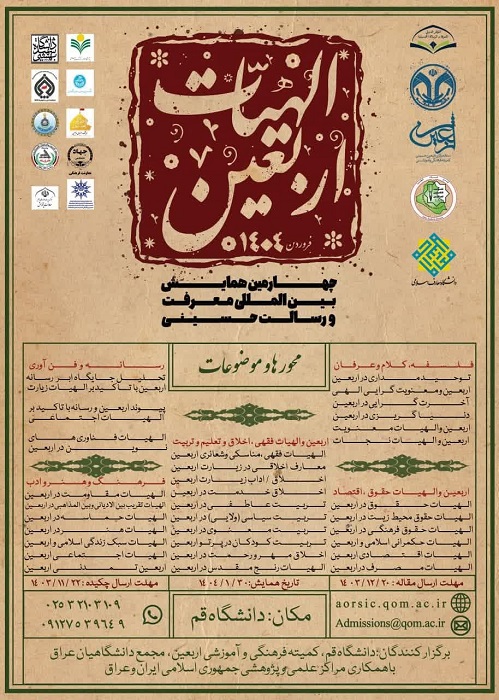 الهیّات
اربعین
فروردین ۱۴۰۴
چهارمین همایش
بین المللی معرفت
و رسالت حسینی
دانشگاه معارف اسلامی
محورها و موضوعات
فلسفه، کلام و عرفان
توحیدمداری در اربعین
اربعین و معنویت گرایی الهی
آخرت گرایی در اربعین
دنیاگریزی در اربعین
اربعین و الهیات معنویت
اربعین و الهیات نجات
اربعین و الهیات حقوق، اقتصاد
الهیات حقوق در اربعین
الهیات حقوق محیط زیست در اربعین
الهیات حقوق فرهنگی در اربعین
الهیات حکمرانی اسلامی و اربعین
الهیات اقتصادی اربعین
الهیات مصرف در اربعین
اربعین و الهیات فقهی، اخلاق و تعلیم و تربیت
الهیات فقهی، مناسکی و شعائری اربعین
معارف اخلاقی در زیارت اربعین
اخلاق / آداب زیارت اربعین
اخلاق خدمت در اربعین
تربیت عاطفی در اربعین
تربیت سیاسی (ولایی) در اربعین
تربیت فرهنگی در اربعین
تربیت کودکان در پرتو اربعین
اخلاق مهرورزی در اربعین
الهیات رنج مقدس در اربعین
رسانه و فن آوری
تحلیل جایگاه ابر رسانه
اربعین با تاکید بر الهیات زیارت
پیوند اربعین و رسانه با تاکید بر
الهیات اجتماعی
الهیات فناوری های
نوین در اربعین
فرهنگ و هنر و ادب
الهیات مقاومت در اربعین
الهیات تقریب بین الادیانی و بین المذاهبی در اربعین
الهیات حماسه در اربعین
الهیات هنر در اربعین
الهیات سبک زندگی اسلامی و اربعین
الهیات اجتماعی اربعین
اربعین تمدنی اربعین
مهلت ارسال مقاله: ۱۴۰۳/۱۲/۲۰
تاریخ همایش: ۱۴۰۴/۱/۳۰
مهلت ارسال چکیده: ۱۴۰۳/۱۱/۲۲
aorsic.qom.ac.ir
Admissions@qom.ac.ir
مکان: دانشگاه قم
۰۲۵۳۲۱۰۳۱۰۹
۰۹۱۲۷۵۳۹۶۴۹
برگزارکنندگان: دانشگاه قم، کمیته فرهنگی و آموزشی اربعین، مجمع دانشگاهیان عراق
با همکاری مراکز علمی و پژوهشی جمهوری اسلامی ایران و عراق